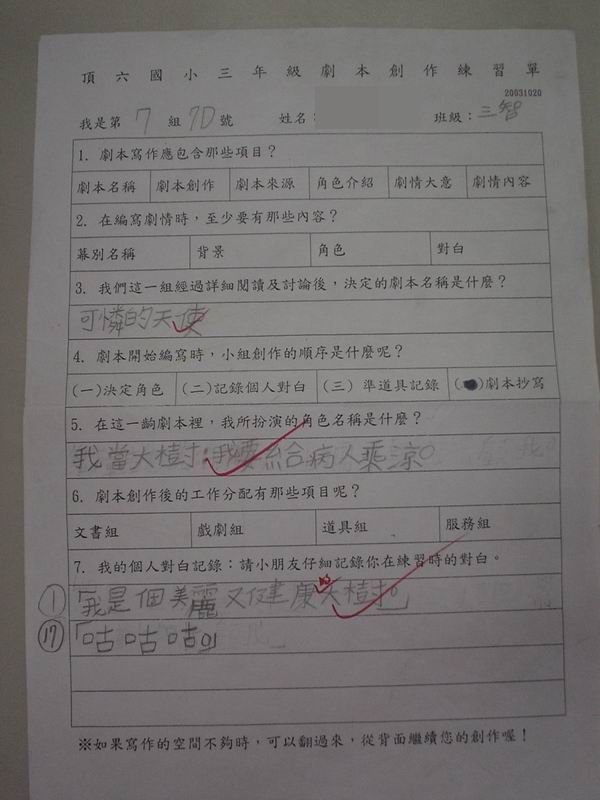 頂六國小三年級劇本創作練習單
20031020
我是第 7 組 7D 號 姓名： 班級：三智
1. 劇本寫作應包含那些項目？
劇本名稱 劇本創作 劇本來源 角色介紹 劇情大意 劇情內容
2. 在編寫劇情時，至少要有那些內容？
幕別名稱 背景 角色 對白
3. 我們這一組經過詳細閱讀及討論後，決定的劇本名稱是什麼？
可憐的天使
4. 劇本開始編寫時，小組創作的順序是什麼呢？
(一)決定角色 (二)記錄個人對白 (三) 準道具記錄 ( )劇本抄寫
5. 在這一齣劇本裡，我所扮演的角色名稱是什麼？
我當大樹，我要給病人乘涼。
6. 劇本創作後的工作分配有那些項目呢？
文書組 戲劇組 道具組 服務組
7. 我的個人對白記錄：請小朋友仔細記錄你在練習時的對白。
① 「我是個美麗又健康的大樹。」
⑰ 「咕咕咕。」
※如果寫作的空間不夠時，可以翻過來，從背面繼續您的創作喔！